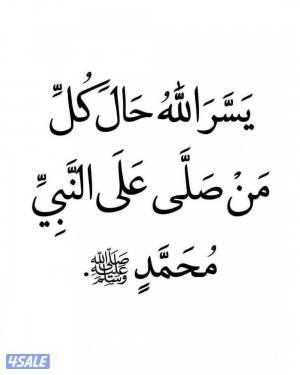 يَسَّرَ اللّٰهُ حَالَ كُلِّ
مَنْ صَلَّى عَلَى النَّبِيِّ
مُحَمَّدٍ ﷺ.
4SALE